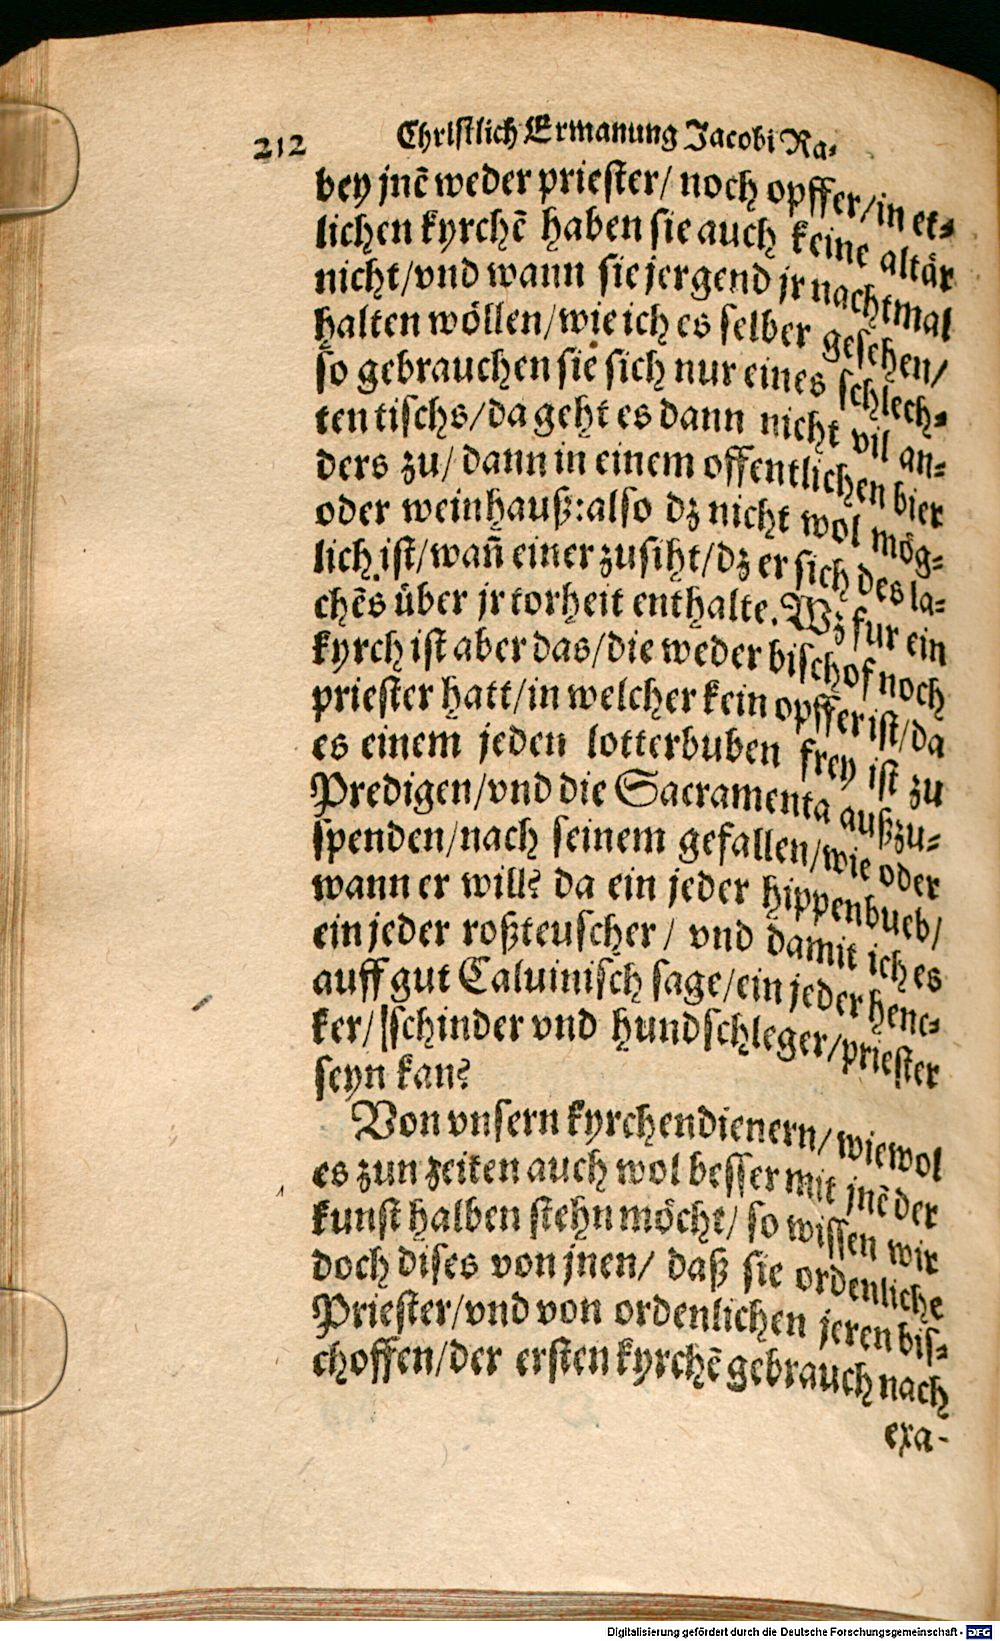 212 Christlich Ermanung Jacobi Ra-
bey jnẽ weder priester/ noch opffer/in et-
lichen kyrchẽ haben sie auch keine altär
nicht/vnd wann sie jergend jr nachtmal
halten wöllen/wie ich es selber gesehen/
so gebrauchen sie sich nur eines schlech-
ten tischs/da geht es dann nicht vil an-
ders zu/ dann in einem offentlichen bier
oder weinhauß:also dz nicht wol mög-
lich ist/wañ einer zusiht/dz er sich des la-
chẽs über jr torheit enthalte. Wz fur ein
kyrch ist aber das/die weder bischof noch
priester hatt/in welcher kein opffer ist/da
es einem jeden lotterbuben frey ist zu
Predigen/vnd die Sacramenta außzu-
spenden/nach seinem gefallen/wie oder
wann er will? da ein jeder hippenbueb/
ein jeder roßteuscher/ vnd damit ich es
auff gut Caluinisch sage/ein jeder henc-
ker/ schinder vnd hundschleger/priester
seyn kan?
Von vnsern kyrchendienern/wiewol
es zun zeiten auch wol besser mit jnẽ der
kunst halben stehn möcht/ so wissen wir
doch dises von jnen/ daß sie ordenliche
Priester/vnd von ordenlichen jeren bis-
choffen/der ersten kyrchẽ gebrauch nach
exa-
Digitalisierung gefördert durch die Deutsche Forschungsgemeinschaft - DFG